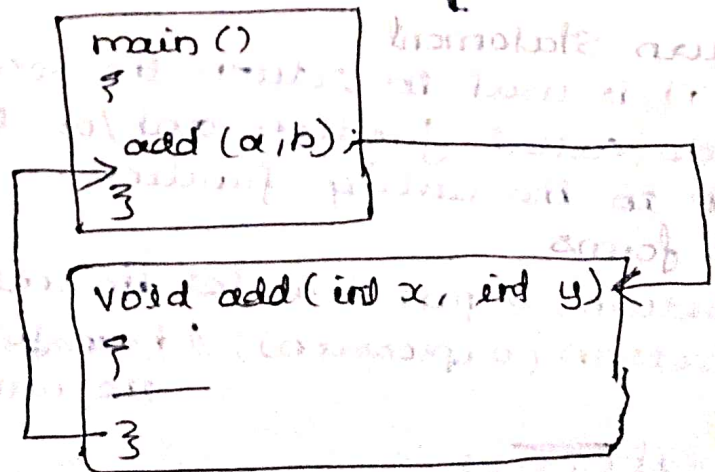 main ()
{
add (a,b);
}
void add (int x, int y)
{
}